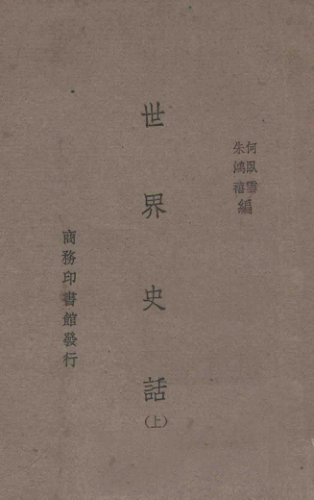 何臥雲
朱鴻禧
編
世界史話
(上)
商務印書館發行